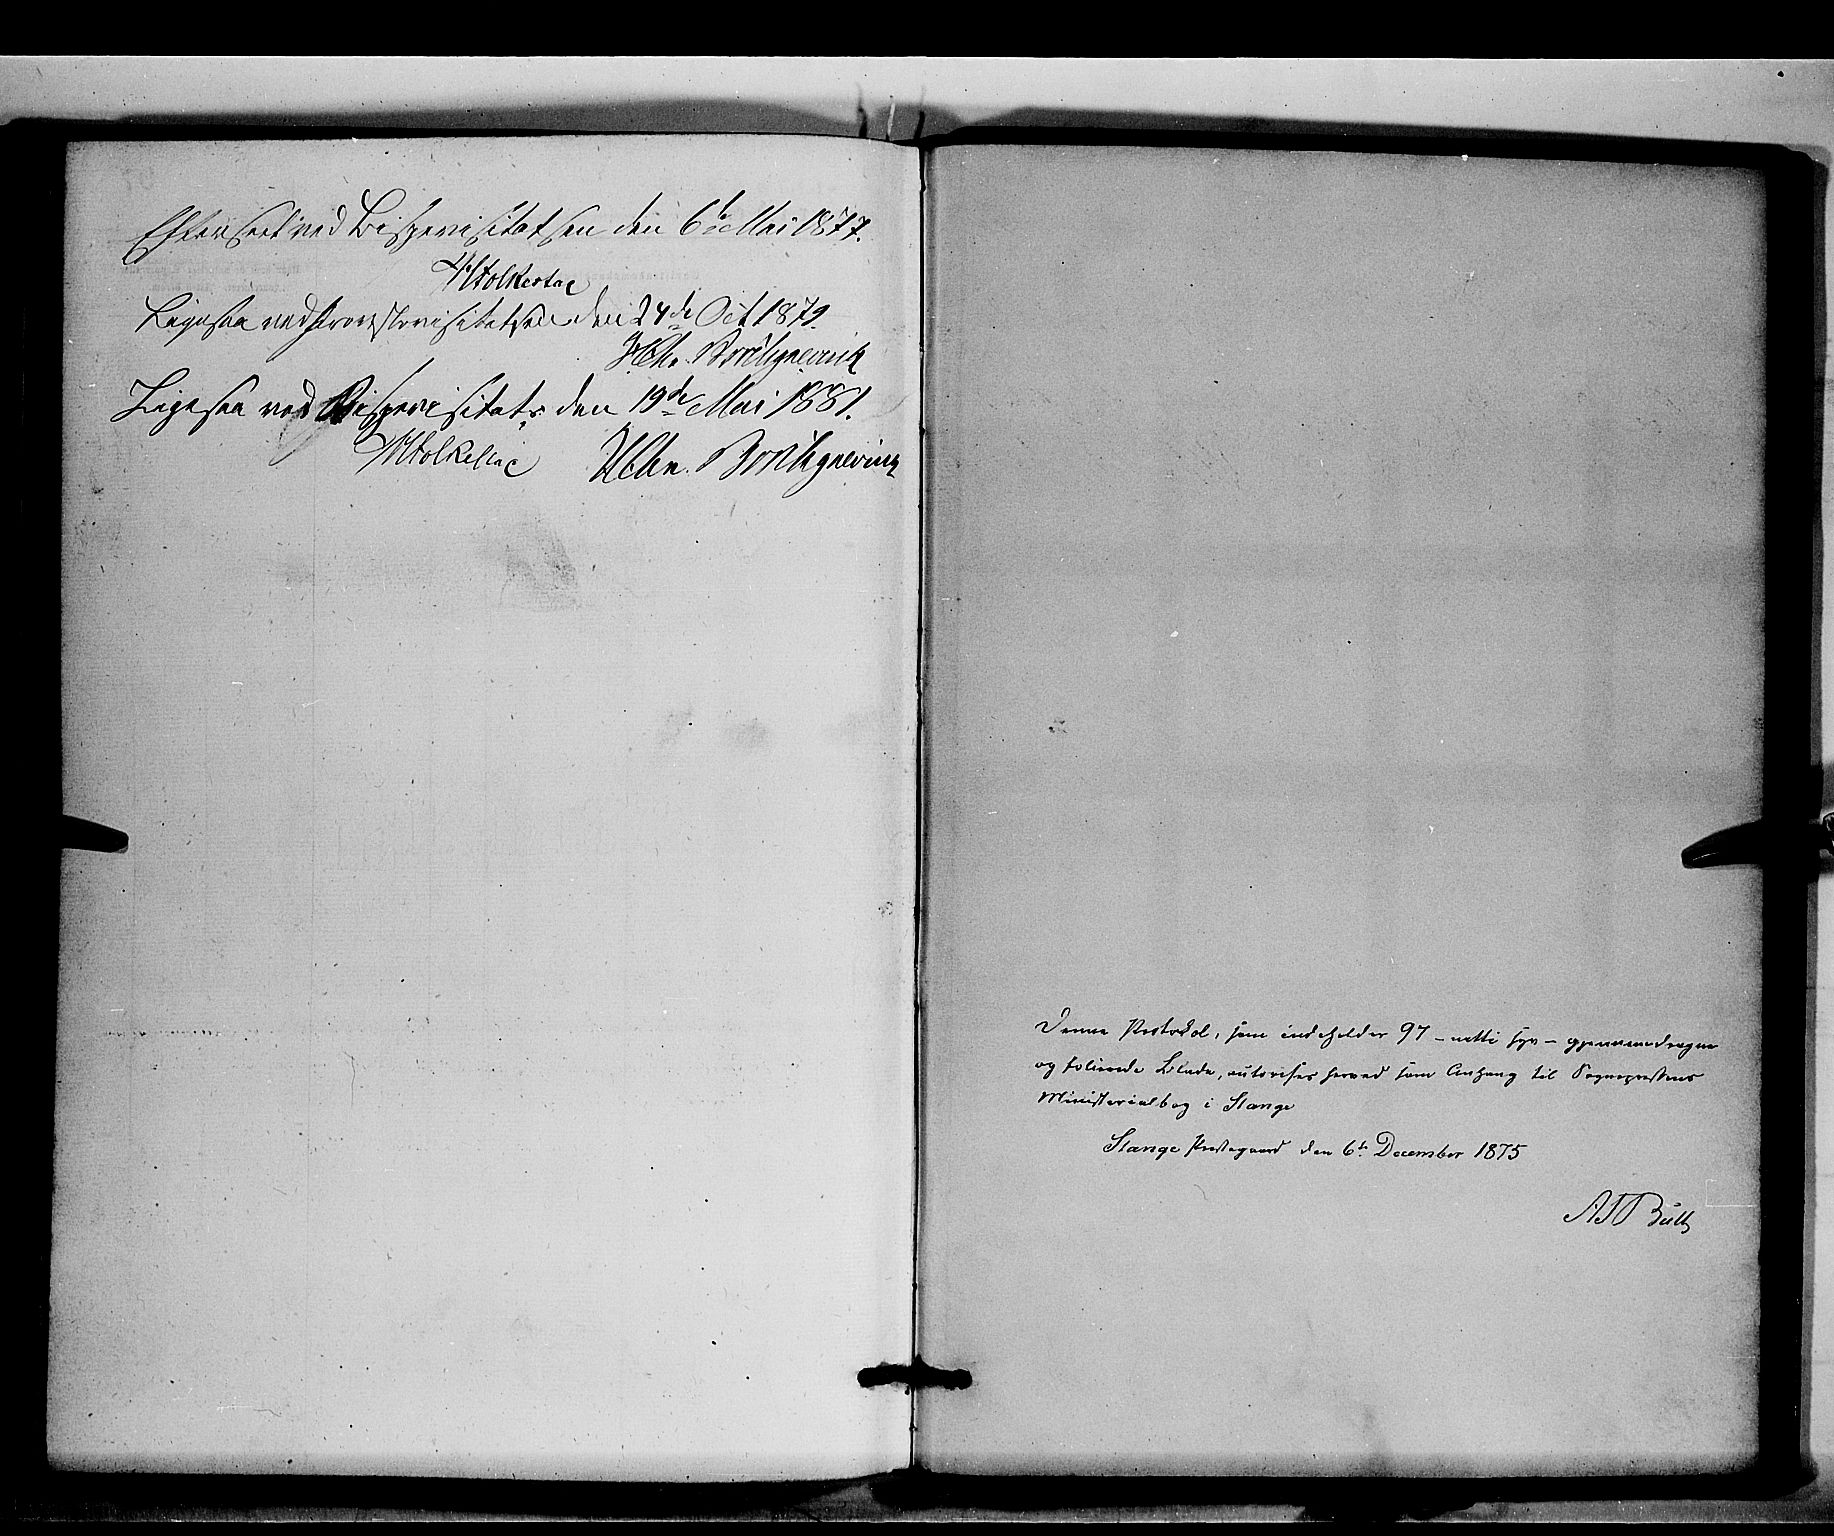 Efterseet ved Bispevisitatsen den 6te Mai 1877.
Folkestad
Ligesaa ved Provstevisitatsen den 24de Oct 1879.
Ligesaa ved Bispevisitats den 19de Mai 1881.
Folkestad
Denne Protokol, som indeholder 97 – nitti syv – gjennemdragne
og folierede Blade, autorises herved som Anhang til Sognepræstens
Ministerialbog i Stange
Stange Præstegaard den 6te December 1875